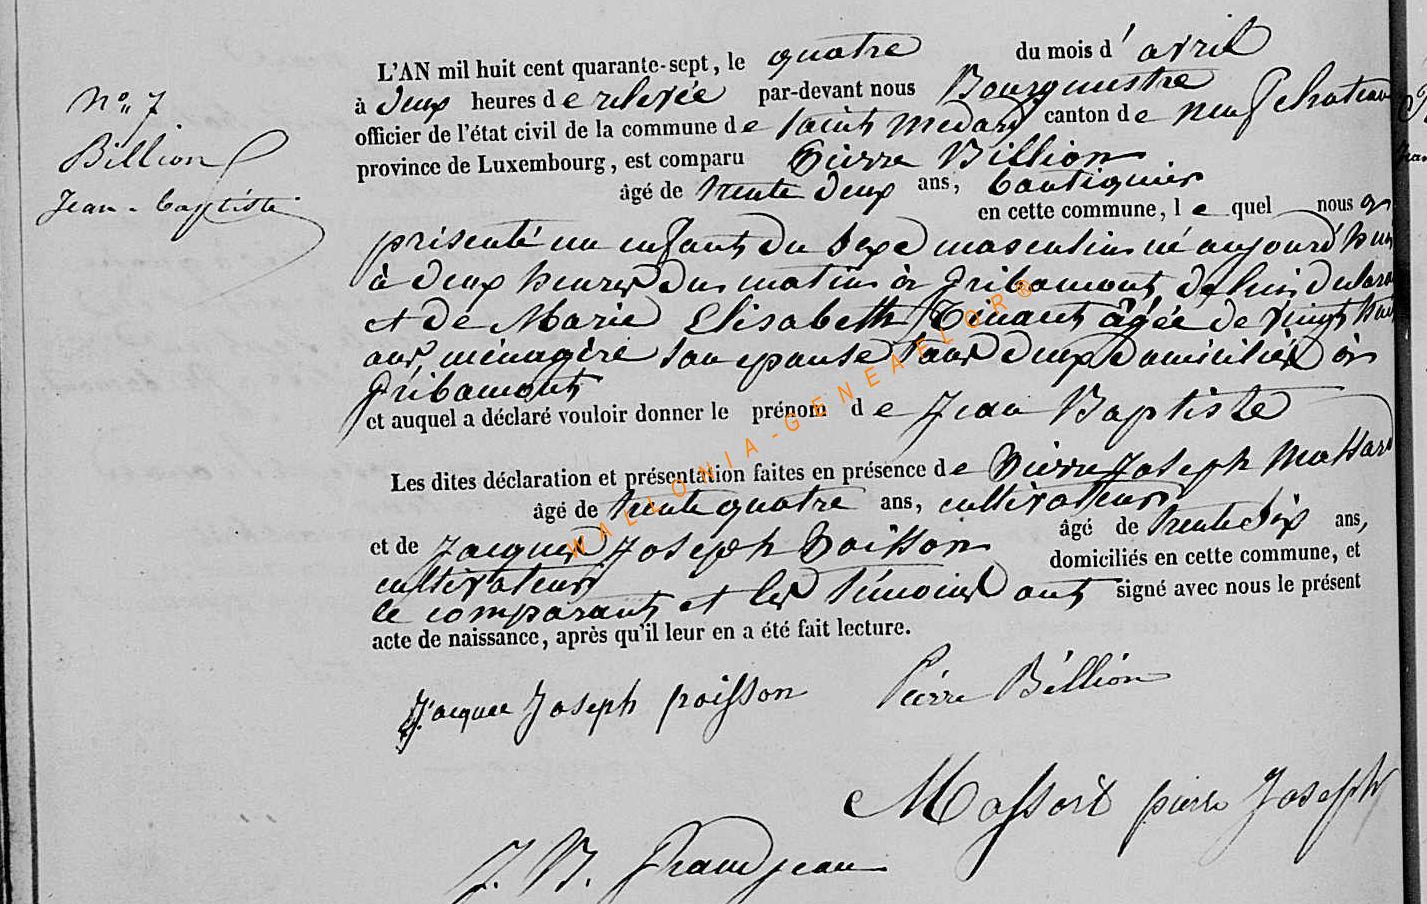 N° 7
Billion
Jean-baptiste
L'AN mil huit cent quarante-sept, le quatre du mois d'avril
à deux heures de relevée par-devant nous Bourgmestre
officier de l'état civil de la commune de Saint Medard canton de neufchateau
province de Luxembourg, est comparu Pierre Billion
âgé de trente deux ans, boutiquier
en cette commune, le quel nous a
présenté un enfant du sexe masculin né aujourd'hui
à deux heures du matin à gribomont, de lui déclarant
et de Marie Elisabeth Tinant âgée de vingt huit
ans, ménagère son epouse tous deux domiciliés à
gribomont
et auquel a déclaré vouloir donner le prénom de Jean Baptiste
Les dites déclaration et présentation faites en présence de Pierre Joseph Massard
âgé de trente quatre ans, cultivateur
et de Jacques Joseph Poisson âgé de trente six ans,
cultivateur domiciliés en cette commune, et
le comparant et les témoins ont signé avec nous le présent
acte de naissance, après qu'il leur en a été fait lecture.
Jacque Joseph poisson Pierre Billion
Massart pierre Joseph
J. B. Grandjean
WALLONIA-GENEAFLOR®